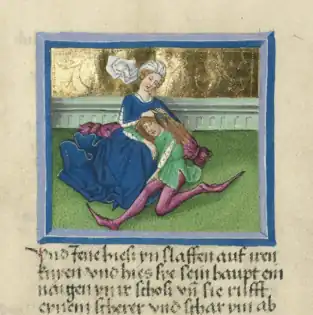 vnd Jene hieß yn slaffen auf iren
knyen vnd hies sye sein haupt ein
naigen yn ir schoß vn̄ sie rüfft
eynem scherer vnd schar ym ab